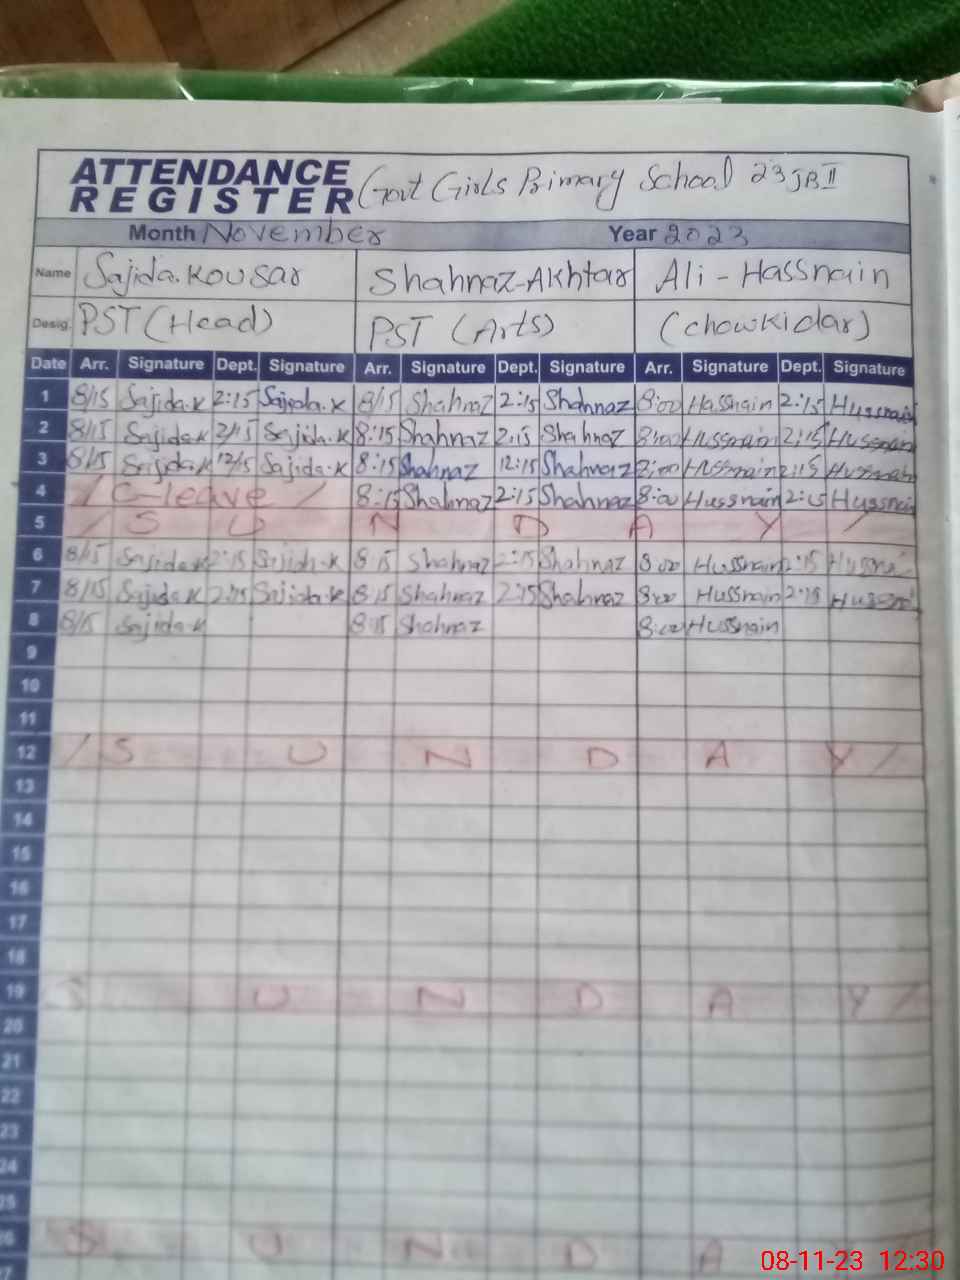 ATTENDANCE
REGISTER Govt Girls Primary School 23 JB II
Month November Year 2023
Name Sajida.Kousar Shahnaz-Akhtar Ali - Hassnain
Desig. PST (Head) PST (Arts) (Chowkidar)
Date Arr. Signature Dept. Signature Arr. Signature Dept. Signature Arr. Signature Dept. Signature
1 8/15 Sajida.K 2:15 Sajida.K 8/15 Shahnaz 2:15 Shahnaz 8:00 Hassnain 2:15 Hussnain
2 8/15 Sajida.K 2/15 Sajida.K 8:15 Shahnaz 2:15 Shahnaz 8:00 Hussnain 2:15 Hussnain
3 8/15 Sajida.K 12/15 Sajida.K 8:15 Shahnaz 12:15 Shahnaz 8:00 Hussnain 2:15 Hussnain
4 / C-leave / 8:15 Shahnaz 2:15 Shahnaz 8:00 Hussnain 2:15 Hussnain
5 / S U N D A Y /
6 8/15 Sajida.K 2:15 Sajida.K 8:15 Shahnaz 2:15 Shahnaz 8:00 Hussnain 2:15
7 8/15 Sajida.K 2:15 Sajida.K 8:15 Shahnaz 2:15 Shahnaz 8:00 Hussnain 2:15
8 8/15 Sajida.K 8:15 Shahnaz 8:00 Hussnain
9
10
11
12 / S U N D A Y /
13
14
15
16
17
18
19 S U N D A Y /
20
21
22
23
24
25
26 S U N D A Y
27
08-11-23 12:30